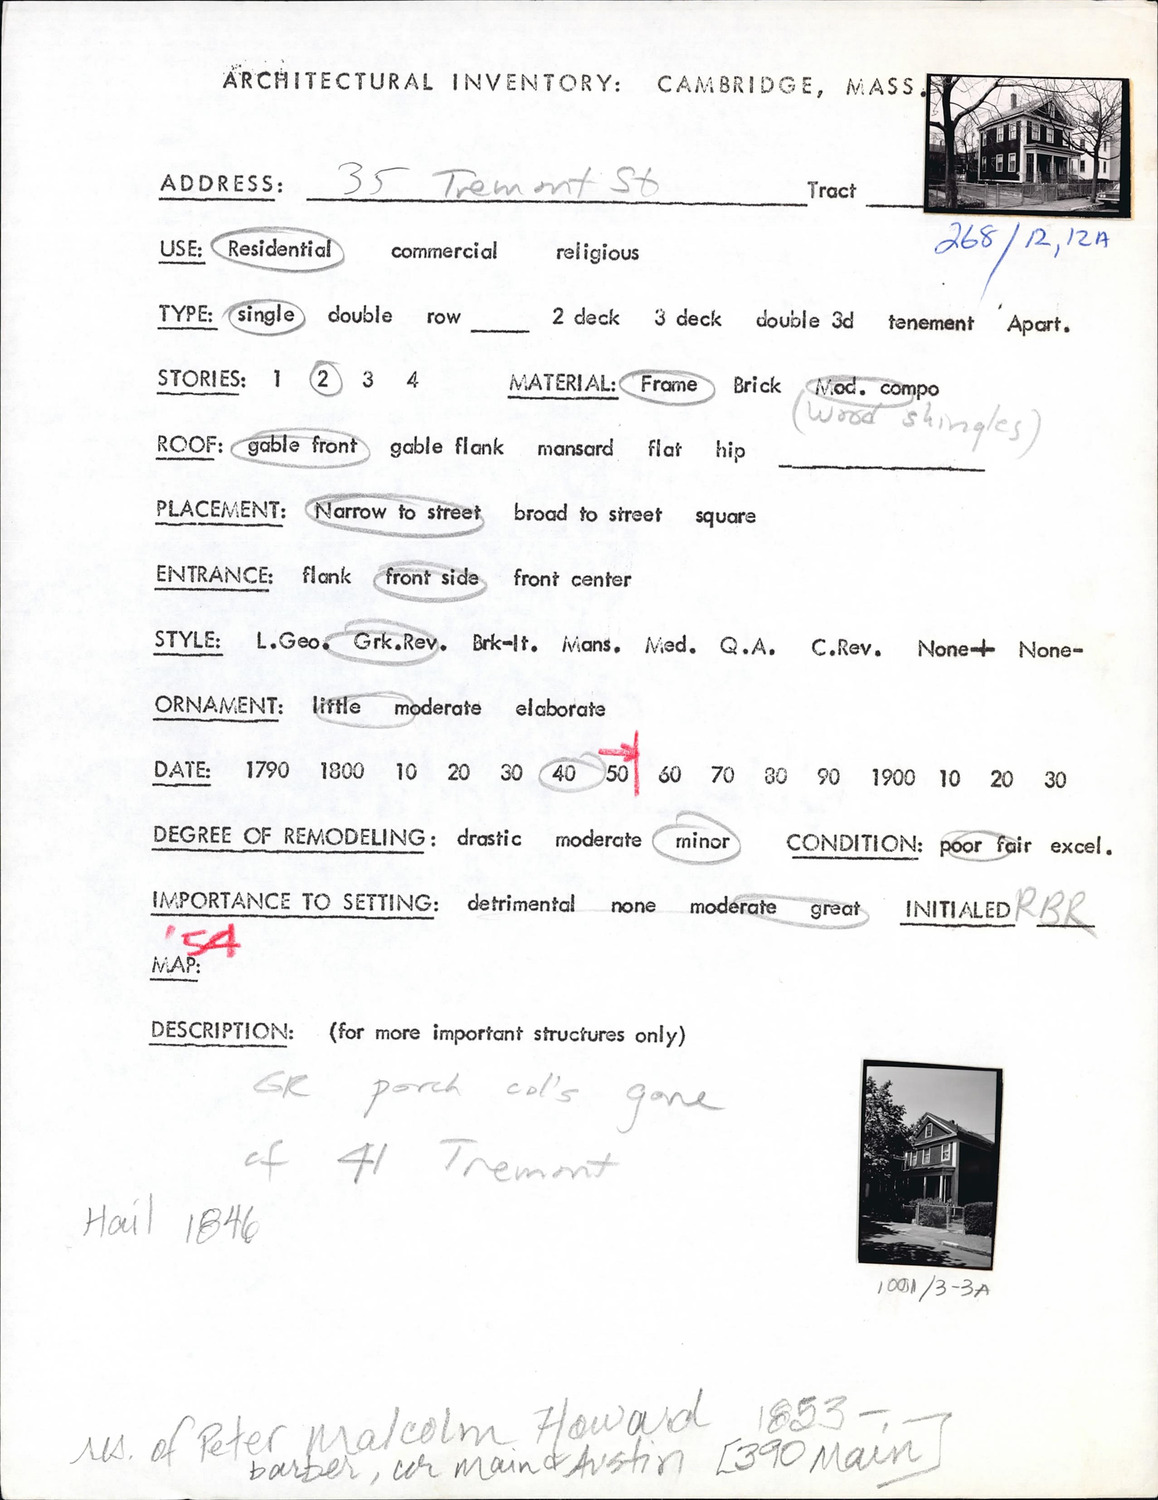 ARCHITECTURAL INVENTORY: CAMBRIDGE, MASS.
ADDRESS: 35 Tremont St Tract
268/12,12A
USE: Residential commercial religious
TYPE: single double row 2 deck 3 deck double 3d tenement Apart.
STORIES: 1 2 3 4 MATERIAL: Frame Brick Mod. compo
(Wood shingles)
ROOF: gable front gable flank mansard flat hip
PLACEMENT: Narrow to street broad to street square
ENTRANCE: flank front side front center
STYLE: L.Geo. Grk.Rev. Brk-It. Mans. Med. Q.A. C.Rev. None+ None-
ORNAMENT: little moderate elaborate
DATE: 1790 1800 10 20 30 40 50 60 70 80 90 1900 10 20 30
DEGREE OF REMODELING: drastic moderate minor CONDITION: poor fair excel.
IMPORTANCE TO SETTING: detrimental none moderate great INITIALED RBR
'54
MAP:
DESCRIPTION: (for more important structures only)
GR porch col's gone
cf 41 Tremont
Hail 1846
1001/3-3A
res. of Peter Malcolm Howard 1853-
barber, cor Main & Austin [390 Main]